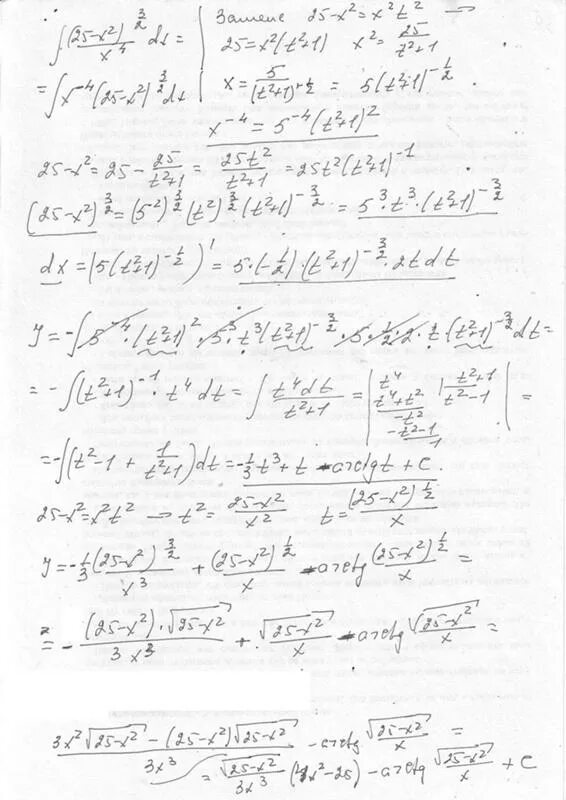 ∫ (25-x²)^{3/2} / x⁴ dx = | Замена 25-x² = x²t² →
25 = x²(t²+1) x² = 25/(t²+1)
= ∫ x⁻⁴ (25-x²)^{3/2} dt | x = 5/(t²+1)^{+1/2} = 5(t²+1)^{-1/2}
x⁻⁴ = 5⁻⁴(t²+1)²
25-x² = 25 - 25/(t²+1) = 25t²/(t²+1) = 25t²(t²+1)⁻¹
(25-x²)^{3/2} = (5²)^{3/2} (t²)^{3/2} (t²+1)^{-3/2} = 5³·t³·(t²+1)^{-3/2}
dx = (5(t²+1)^{-1/2})' = 5·(-1/2)·(t²+1)^{-3/2}·2t dt
y = -∫ 5⁻⁴·(t²+1)²·5³·t³(t²+1)^{-3/2}·5·1/2·2·t·(t²+1)^{-3/2} dt =
= -∫ (t²+1)⁻¹·t⁴ dt = ∫ t⁴dt/(t²+1) = | t⁴ | t²+1
t⁴+t² t²-1
-t²
-t²-1
1 | =
= -∫(t²-1 + 1/(t²+1))dt = -1/3 t³ + t - arctg t + C
25-x² = x²t² → t² = (25-x²)/x² t = (25-x²)^{1/2}/x
y = -1/3 (25-x²)^{3/2}/x³ + (25-x²)^{1/2}/x - arctg (25-x²)^{1/2}/x =
= - (25-x²)·√(25-x²)/(3x³) + √(25-x²)/x - arctg √(25-x²)/x =
(3x²√(25-x²) - (25-x²)√(25-x²))/(3x³) - arctg √(25-x²)/x =
= √(25-x²)/(3x³) (4x²-25) - arctg √(25-x²)/x + C